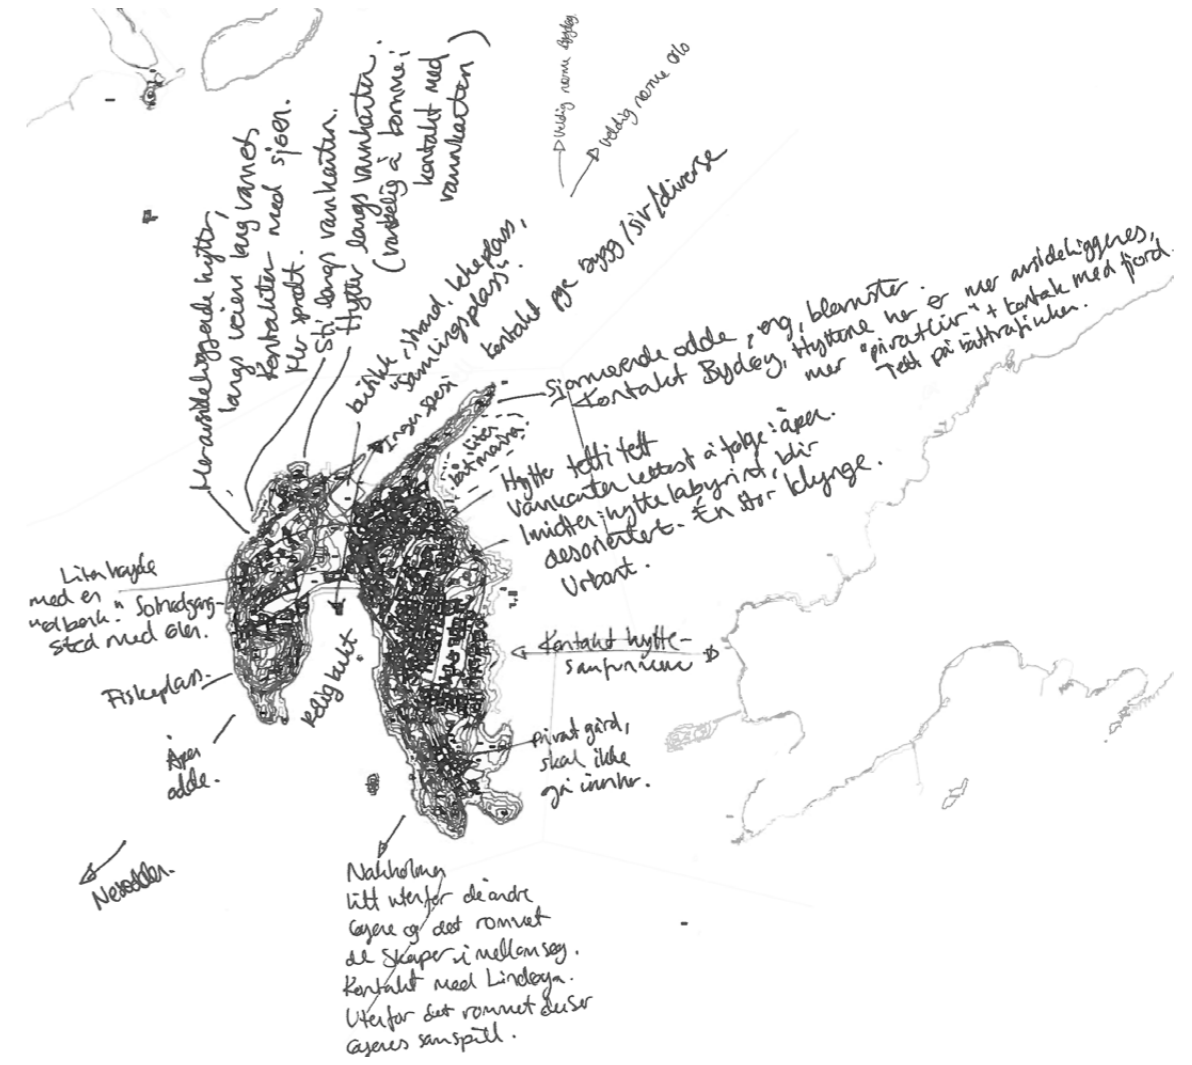 Mer avsideliggende hytter,
langs veien lang vannet
Kontakter med sjøen.
Mer spredt.
Sti langs vannkanten.
Hytter langs vannkanten.
(vanskelig å komme i
kontakt med
vannkanten)
butikk, strand, lekeplass,
"samlingsplass".
Ingen spesi
kontakt pga bygg/siv/diverse
Veldig nærme Bygdøy
Veldig nærme Oslo
Sjarmerende odde, eng, blomster.
Kontakt Bygdøy, Hyttene her er mer avsideliggenes,
mer "piratliv" + kontakt med fjord.
Tett på båttrafikken.
liten
båtmarina.
Hytter tett i tett
Vannkanten lettest å følge: åpen.
I midten: hyttelabyrint, blir
desorientert. Én stor klynge.
Urbant.
Liten høyde
med en
benk. Solnedgang-
sted med ølen.
Fiskeplass.
Åpen
odde.
Nesodden.
Kontakt hytte-
samfunnene
privat gård,
skal ikke
gå innenfor.
Nakholmen
litt utenfor de andre
øyene og det rommet
de skaper i mellom seg.
Kontakt med Lindøya.
Utenfor det rommet
øyenes samspill.